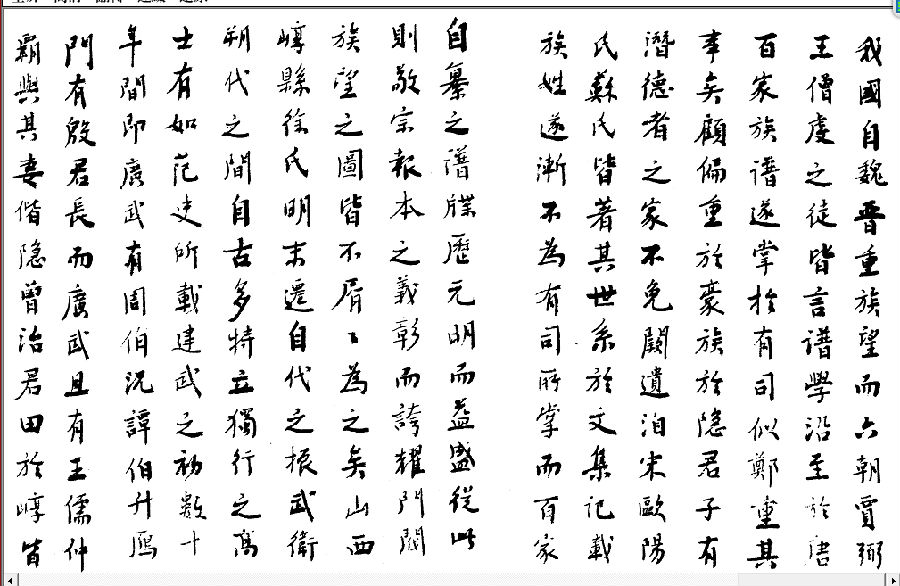 我國自魏晉重族望而六朝賈弼
王僧虔之徒皆言譜學沿至於唐
百家族譜遂掌於有司似鄭重其
事矣顧偏重於豪族於隐君子有
潛德者之家不免闕遺洎宋歐陽
氏蘇氏皆著其世系於文集記載
族姓遂漸不為有司所掌而百家
自纂之譜牒歷元明而益盛從此
則敬宗報本之義彰而誇耀門閥
族望之圖皆不屑屑為之矣山西
崞縣徐氏明末遷自代之振武衛
朔代之間自古多特立獨行之高
士有如范史所載建武之初數十
年間即廣武有周伯況譚伯升鴈
門有殷君長而廣武且有王儒仲
霸與其妻偕隐曾治君田於崞皆